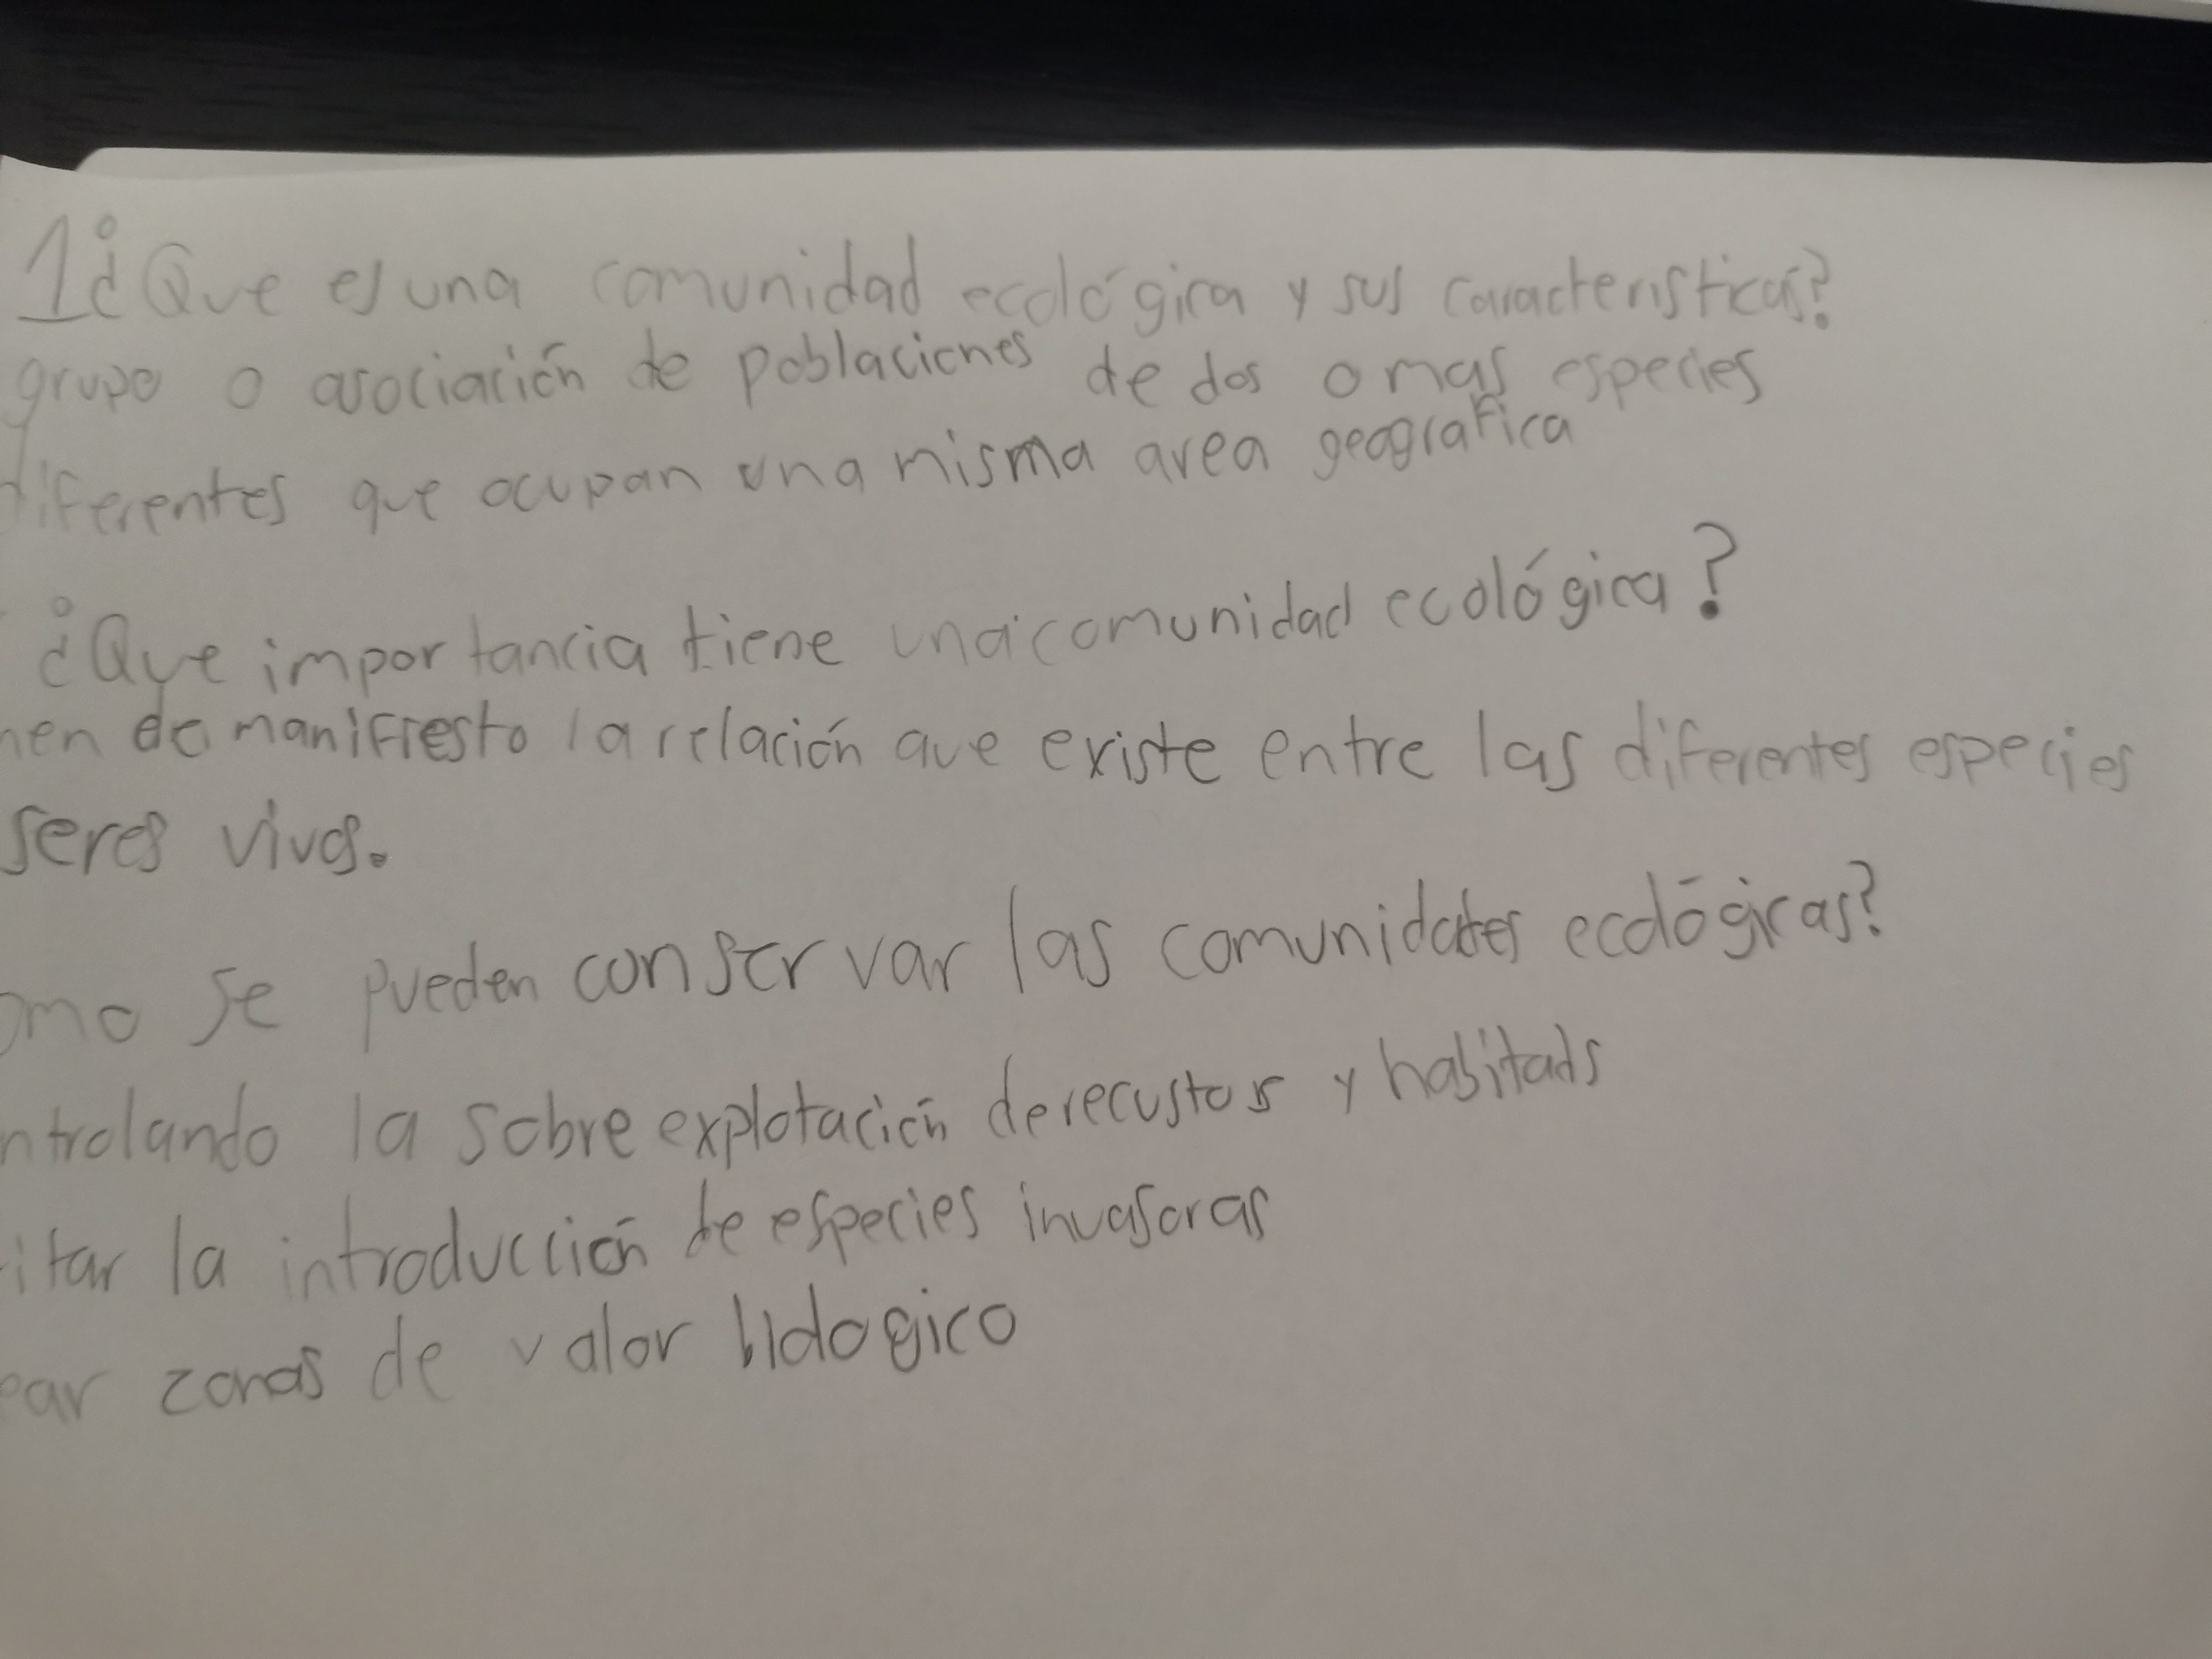 1¿Que es una comunidad ecológica y sus caracteristicas?
grupo o asociación de poblaciones de dos o mas especies
diferentes que ocupan una misma area geografica
¿Que importancia tiene una comunidad ecológica?
nen de manifiesto la relación que existe entre las diferentes especies
seres vivos.
omo se pueden conservar las comunidades ecológicas?
ntrolando la sobre explotación de recustos y habitads
itar la introducción de especies invasoras
ear zonas de valor biologico